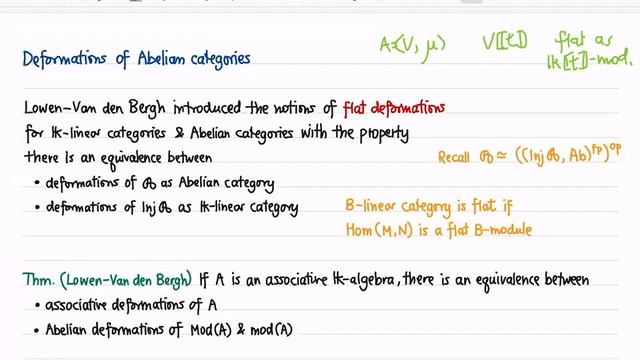 A=(V, μ) V⟦t⟧ flat as
𝕜⟦t⟧-mod.
Deformations of Abelian categories
Lowen-Van den Bergh introduced the notions of flat deformations
for 𝕜-linear categories & Abelian categories with the property
there is an equivalence between
Recall 𝒜 ≃ ((Inj 𝒜, Ab)^fp)^op
• deformations of 𝒜 as Abelian category
• deformations of Inj 𝒜 as 𝕜-linear category
B-linear category is flat if
Hom(M,N) is a flat B-module
Thm. (Lowen-Van den Bergh) If A is an associative 𝕜-algebra, there is an equivalence between
• associative deformations of A
• Abelian deformations of Mod(A) & mod(A)